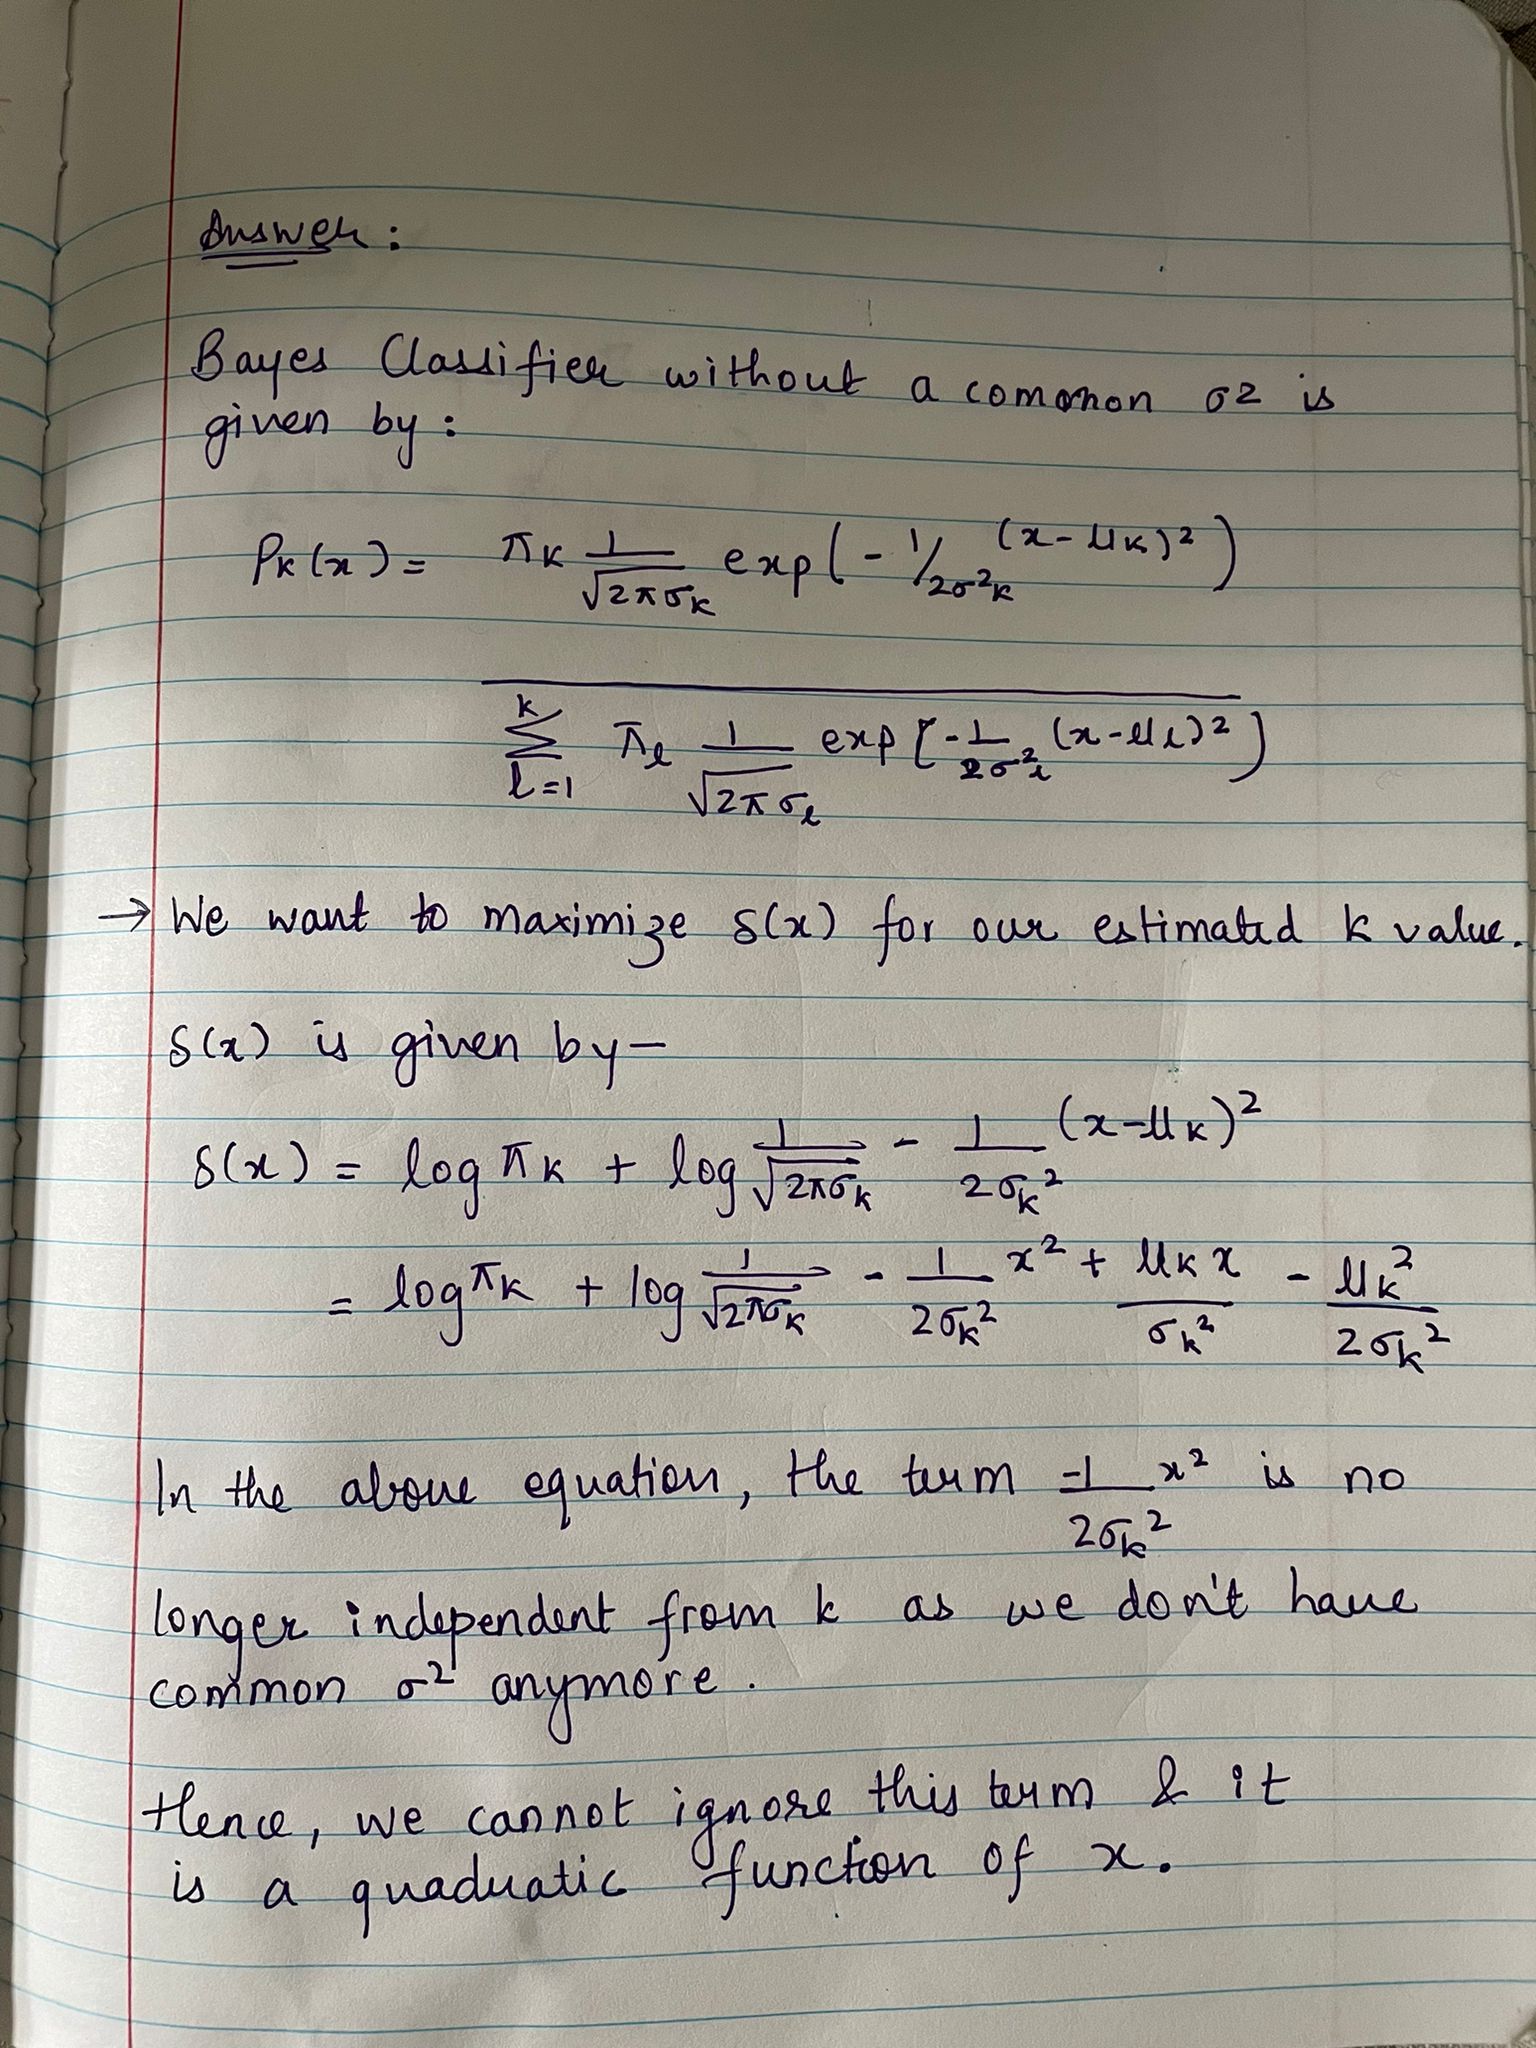 Answer :
Bayes Classifier without a common σ2 is
given by :
Pk(x) = πk 1/√2πσk exp(-1/2σ²k (x-μk)²)
k Σ l=1 πl 1/√2πσl exp[-1/2σ²l (x-μl)²)
→ We want to maximize δ(x) for our estimated k value.
δ(x) is given by –
δ(x) = log πk + log 1/√2πσk - 1/2σk² (x-μk)²
= log πk + log 1/√2πσk - 1/2σk² x² + μk x/σk² - μk²/2σk²
In the above equation, the term -1/2σk² x² is no
longer independent from k as we don't have
common σ² anymore.
Hence, we cannot ignore this term & it
is a quaduatic function of x.